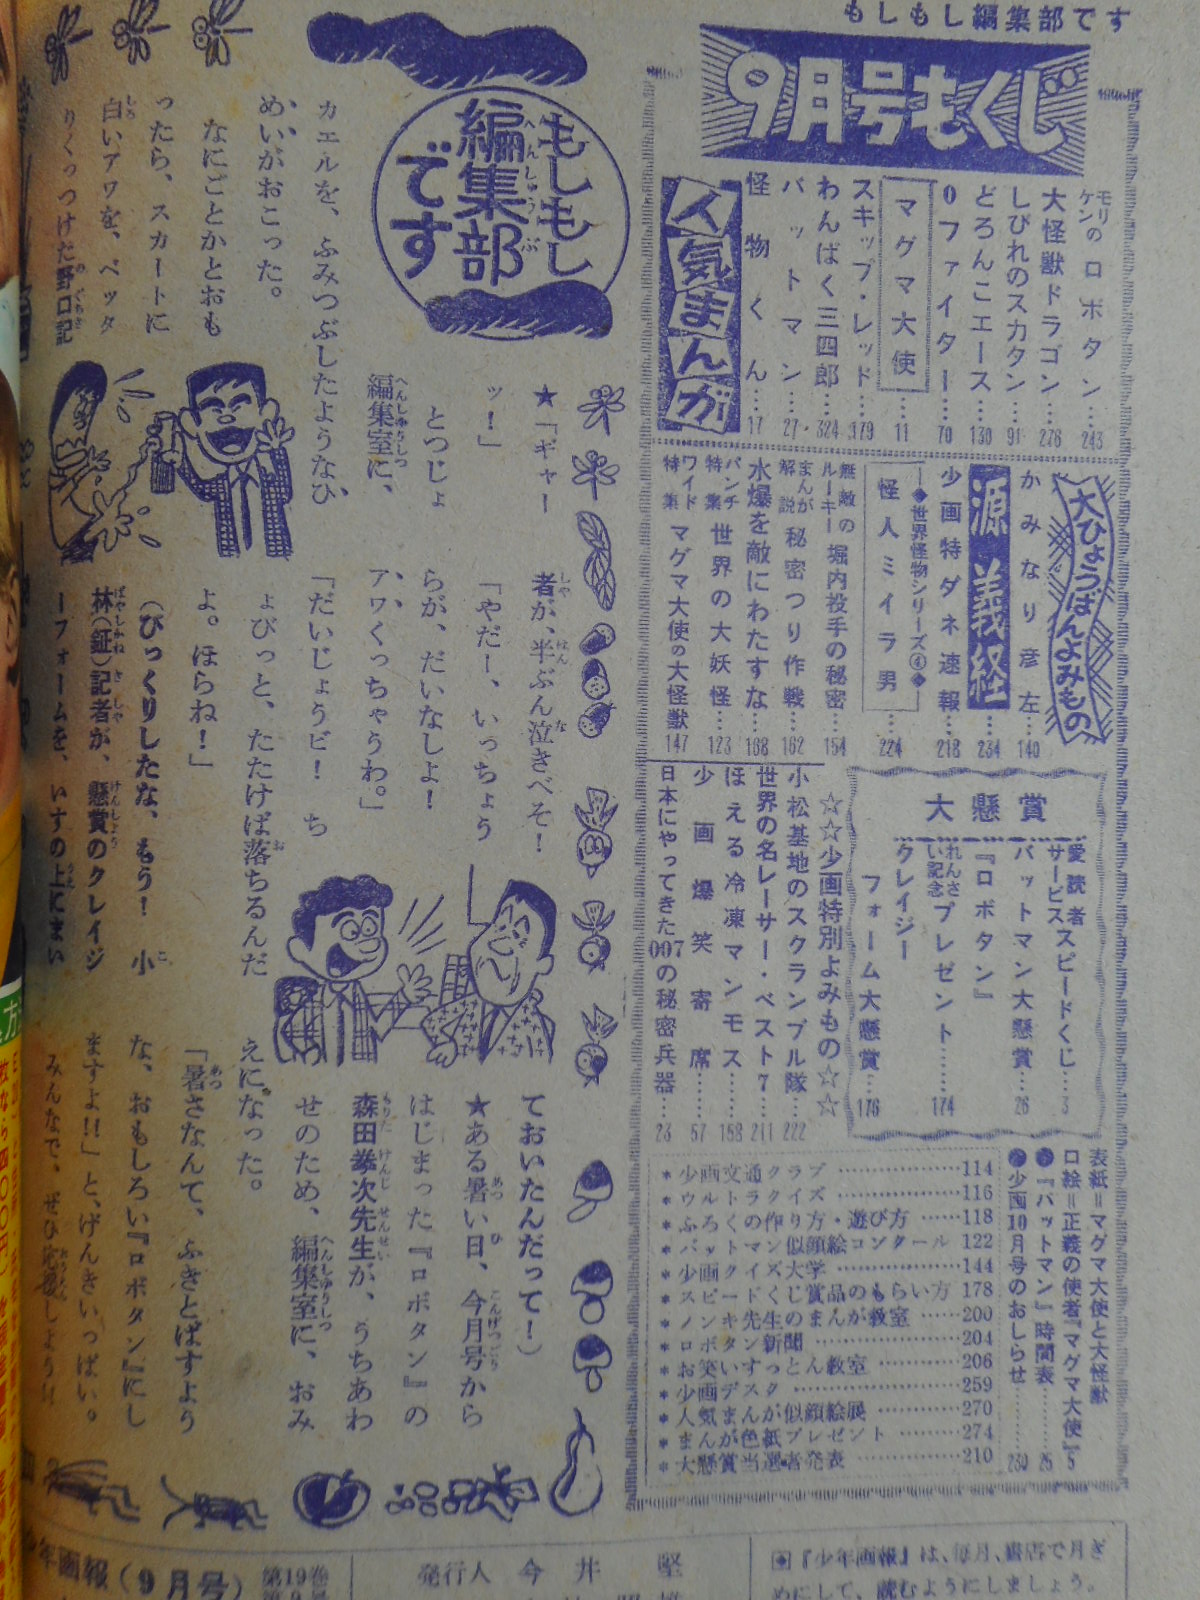 もしもし編集部です
9月号もくじ
モリの
ケンの ロボタン…243
大怪獣ドラゴン…276
しびれのスカタン…91
どろんこエース…130
0ファイター…70
マグマ大使…11
スキップ・レッド…179
わんぱく三四郎…324
バットマン…27
怪物くん…17
人気まんが
大ひょうばんよみもの
かみなり彦左…140
源義経…234
少画特ダネ速報…218
◆世界怪物シリーズ④◆
怪人ミイラ男…224
無敵のルーキー 堀内投手の秘密…154
まんが解説 秘密つり作戦…162
水爆を敵にわたすな…168
パンチ特集 世界の大妖怪…123
ワイド特集 マグマ大使の大怪獣 147
大懸賞
愛読者サービス スピードくじ…3
バットマン大懸賞…26
『ロボタン』
れんさい記念 プレゼント……174
クレイジー
フォーム大懸賞…176
☆☆少画特別よみもの☆☆
小松基地のスクランブル隊…222
世界の名レーサー・ベスト7…211
ほえる冷凍マンモス……158
少画爆笑寄席……57
日本にやってきた007の秘密兵器…23
表紙=マグマ大使と大怪獣
口絵=正義の使者『マグマ大使』5
●『バットマン』時間表……25
●少画10月号のおしらせ……230
*少画文通クラブ……114
*ウルトラクイズ……116
*ふろくの作り方・遊び方……118
*バットマン似顔絵コンクール 122
*少画クイズ大学……144
*スピードくじ賞品のもらい方 178
*ノンキ先生のまんが教室……200
*ロボタン新聞……204
*お笑いすっとん教室……206
*少画デスク……259
*人気まんが似顔絵展……270
*まんが色紙プレゼント……274
*大懸賞当選者発表……210
もしもし
編集部
です
★「ギャー
ッ!」
とつじょ
編集室に、
カエルを、ふみつぶしたようなひ
めいがおこった。
なにごとかとおも
ったら、スカートに
白いアワを、ベッタ
りくっつけた野口記
者が、半ぶん泣きべそ!
「やだー、いっちょう
らが、だいなしよ!
アワくっちゃうわ。」
「だいじょうビ! ち
ょびっと、たたけば落ちるんだ
よ。ほらね!」
(びっくりしたな、もう! 小
林(鉦)記者が、懸賞のクレイジ
ーフォームを、いすの上にまい
ておいたんだって!)
★ある暑い日、今月号から
はじまった『ロボタン』の
森田拳次先生が、うちあわ
せのため、編集室に、おみ
えになった。
「暑さなんて、ふきとばすよう
な、おもしろい『ロボタン』にし
ますよ!!」と、げんきいっぱい。
みんなで、ぜひ応援しよう!!
年画報(9月号) 第19巻
発行人 今井 堅
『少年画報』は、毎月、書店で月ぎ
めにして、読むようにしましょう。